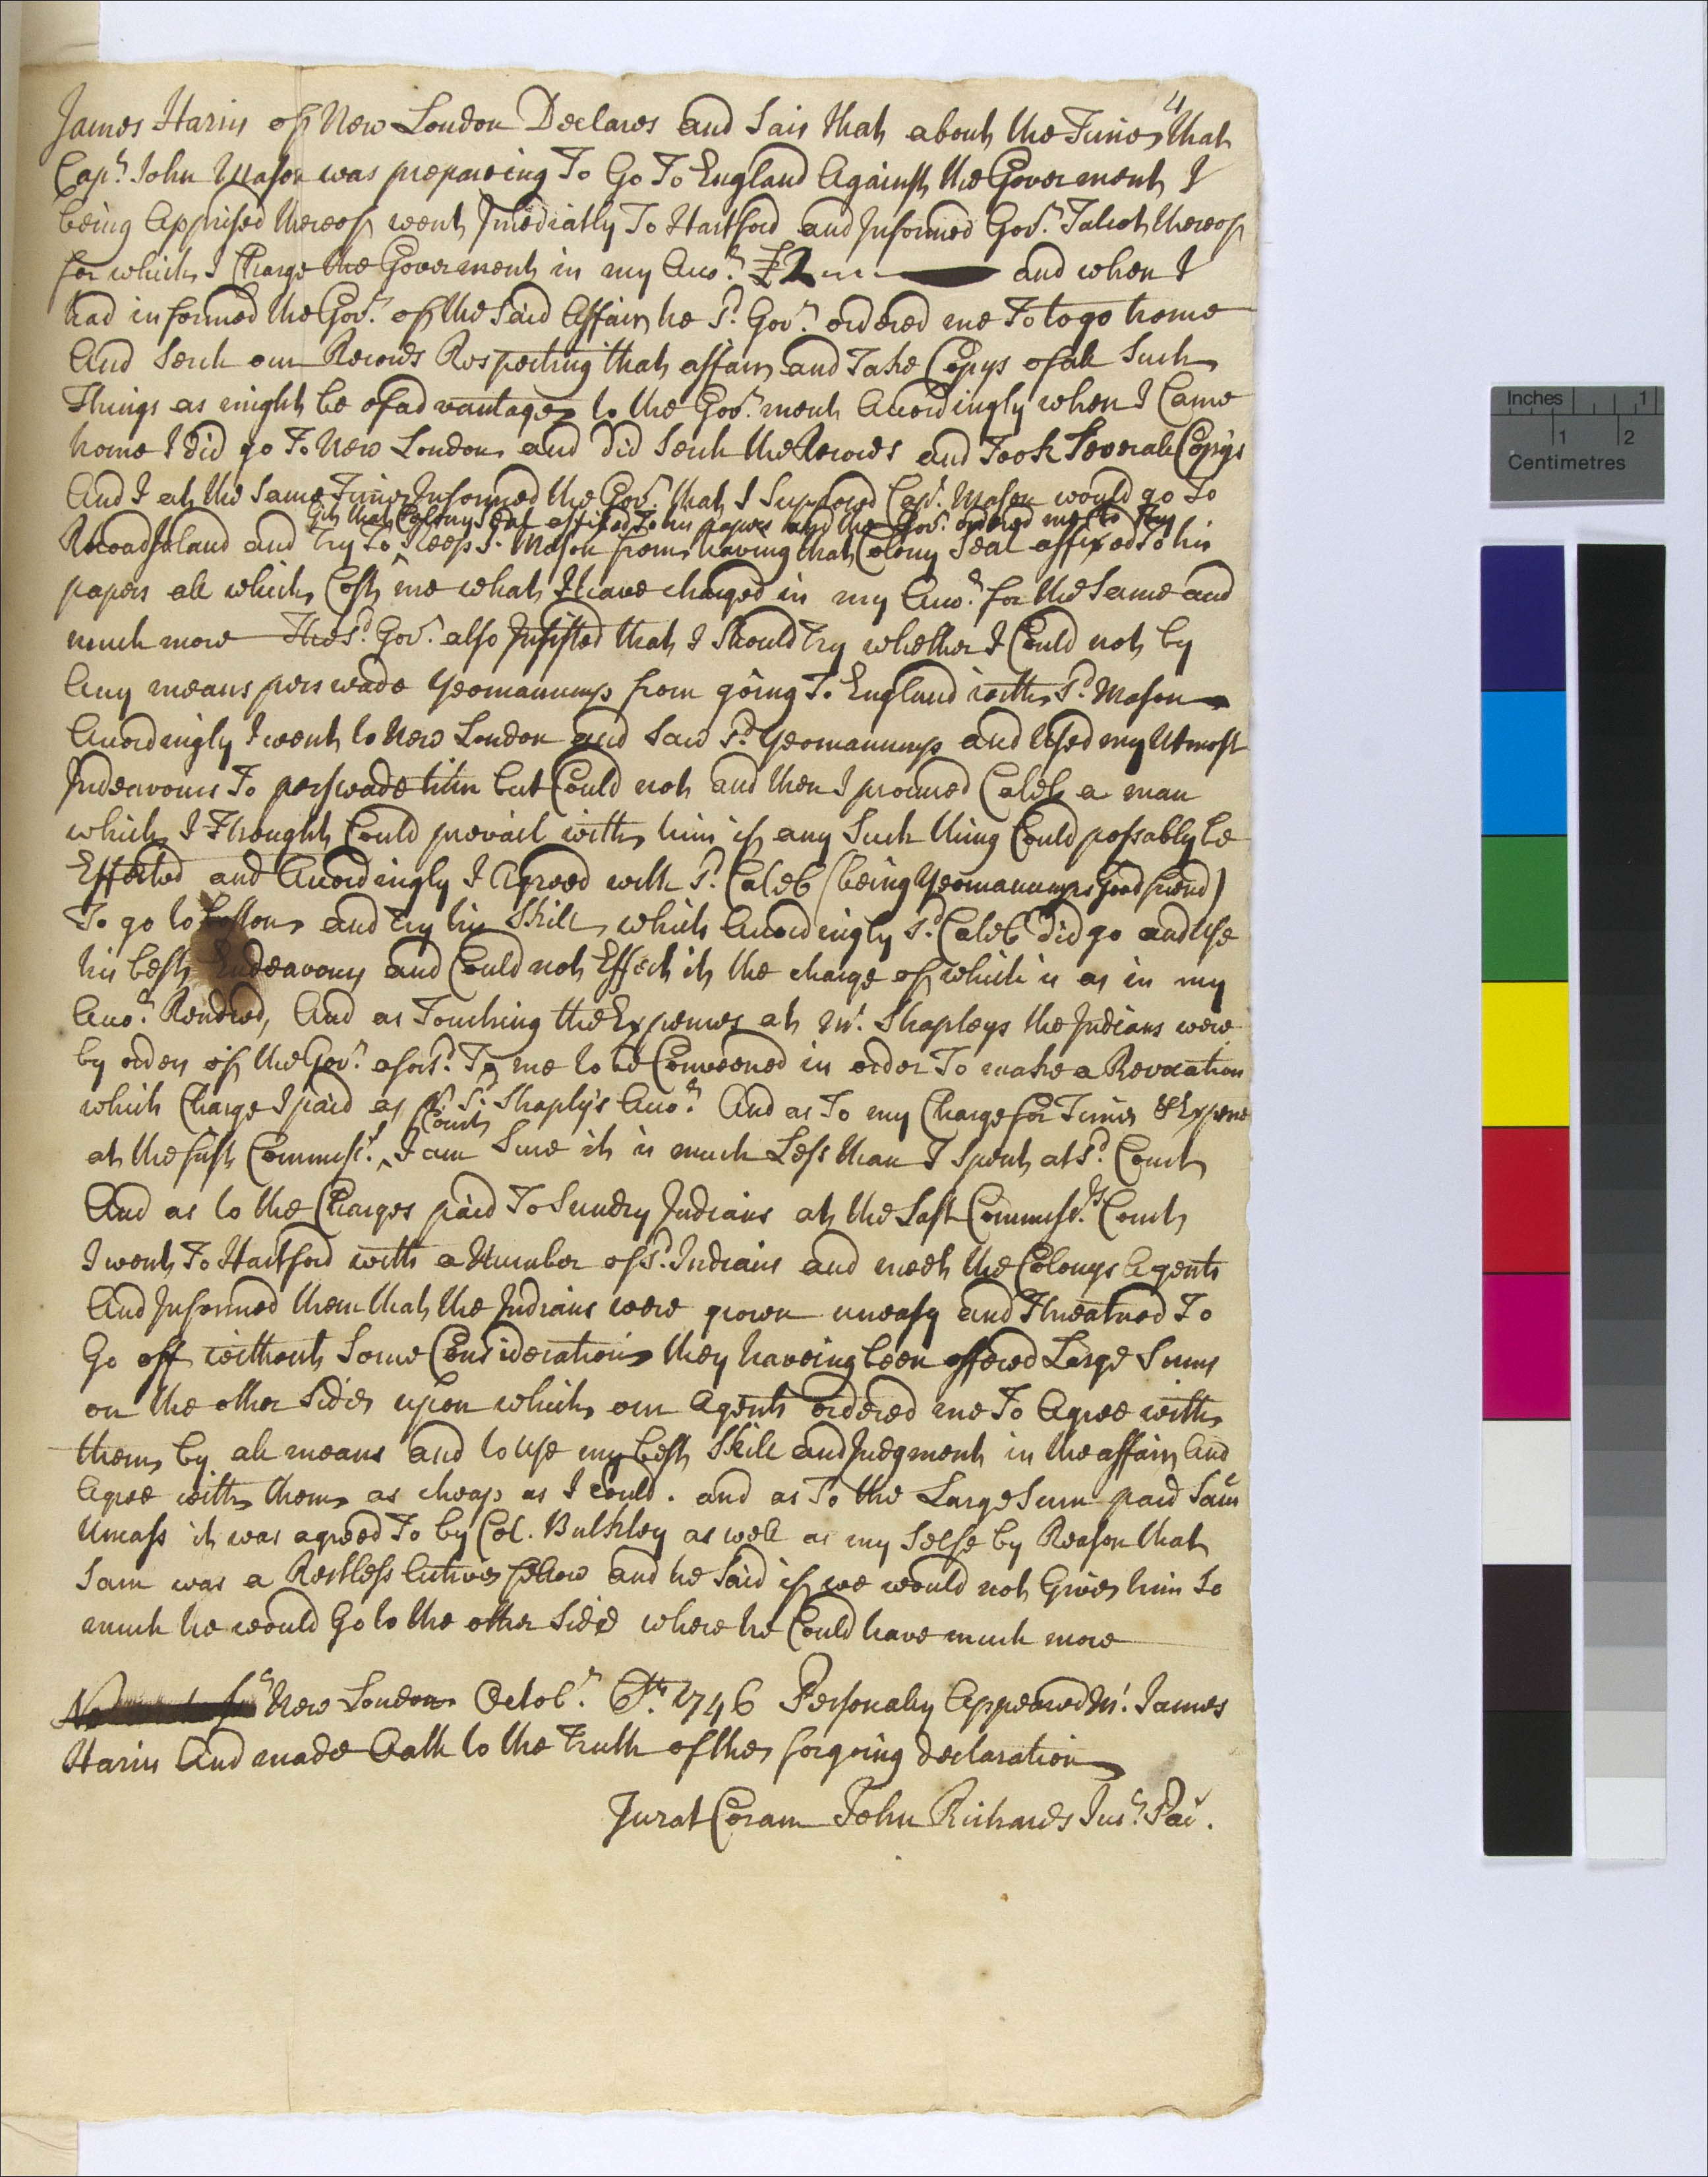 4
James Harris of New London Declares and Sais that about the Time that
Capt. John Mason was prepareing To Go To England Against the Goverment I
being Apprised thereof went Imediatly To Hartford and Informed Govr. Talcot thereof
for which I Charge the Goverment in my Acot. £2 and when I
had informed the Govr. of the Said Affair he sd. Govr. ordered me To to go home
And Serch our Records Respecting that affair and Take Copys of all Such
Things as might be of advantage to the Govr.ment Acordingly when I Came
home I did go To New London and did Serch the Records and Took Severall Copys
And I at the Same Time Informed the Govr. that I Supposed Capt. Mason would go to
Git that Colony Seal affixed To his papers and the Govr. ordered me to Try
Rhoad Island and try to keep sd. Mason from having that Colony Seal affixed to his
papers all which Cost me what I have charged in my Acot. for the Same and
much more The sd. Govr. also Insisted that I Should Try whether I Could not by
Any means perswade Yeomanums from going To England with sd. Mason
Acordingly I went to New London and Saw sd. Yeomanums and Used my Utmost
Indeavours To perswade him but Could not and then I procured Caleb a man
which I Thought Could prevail with him if any Such thing Could possably be
Effected and Acordingly I Agreed with sd. Caleb (being Yeomanumps good friend)
To go to Boston and try his Skill which Acordingly sd. Caleb did go and Use
his best Endeavours and Could not Effect it the charge of which is as in my
Acot. Rendred, And as Touching the Expences at Mr. Shapleys the Indians were
by order of the Govr. aforsd. To me to be Conveened in order To make a Revocation
which Charge I paid as pr. sd. Shaply's Acot. And as To my Charge for Time & Expence
Court
at the first Commissrs. I am Sure it is much Less than I Spent at sd. Court
And as to the Charges paid To Sundry Indians at the Last Commissrs. Court
I went To Hartford with a Number of sd. Indians and meet the Colonys Agents
And Informed them that the Indians were grown uneasy and Threatned To
Go off without Some Consideration they haveing been offered Large Sums
on the other Side upon which our Agents ordered me To Agree with
them by all means and to Use my best Skill and Judgment in the affair and
Agree with them as cheap as I could. and as To the Large Sum paid Sam
Uncass it was agreed To by Col. Bulkley as well as my Selfe by Reason that
Sam was a Restless Active fellow and he Said if we would not Give him So
much he would Go to the other Side where he Could have much more
New London Octobr. 6th. 1746 Personaly Appeared Mr. James
Harris And made Oath to the Truth of the forgoing declaration
Jurat Coram John Richards Just. Pac.